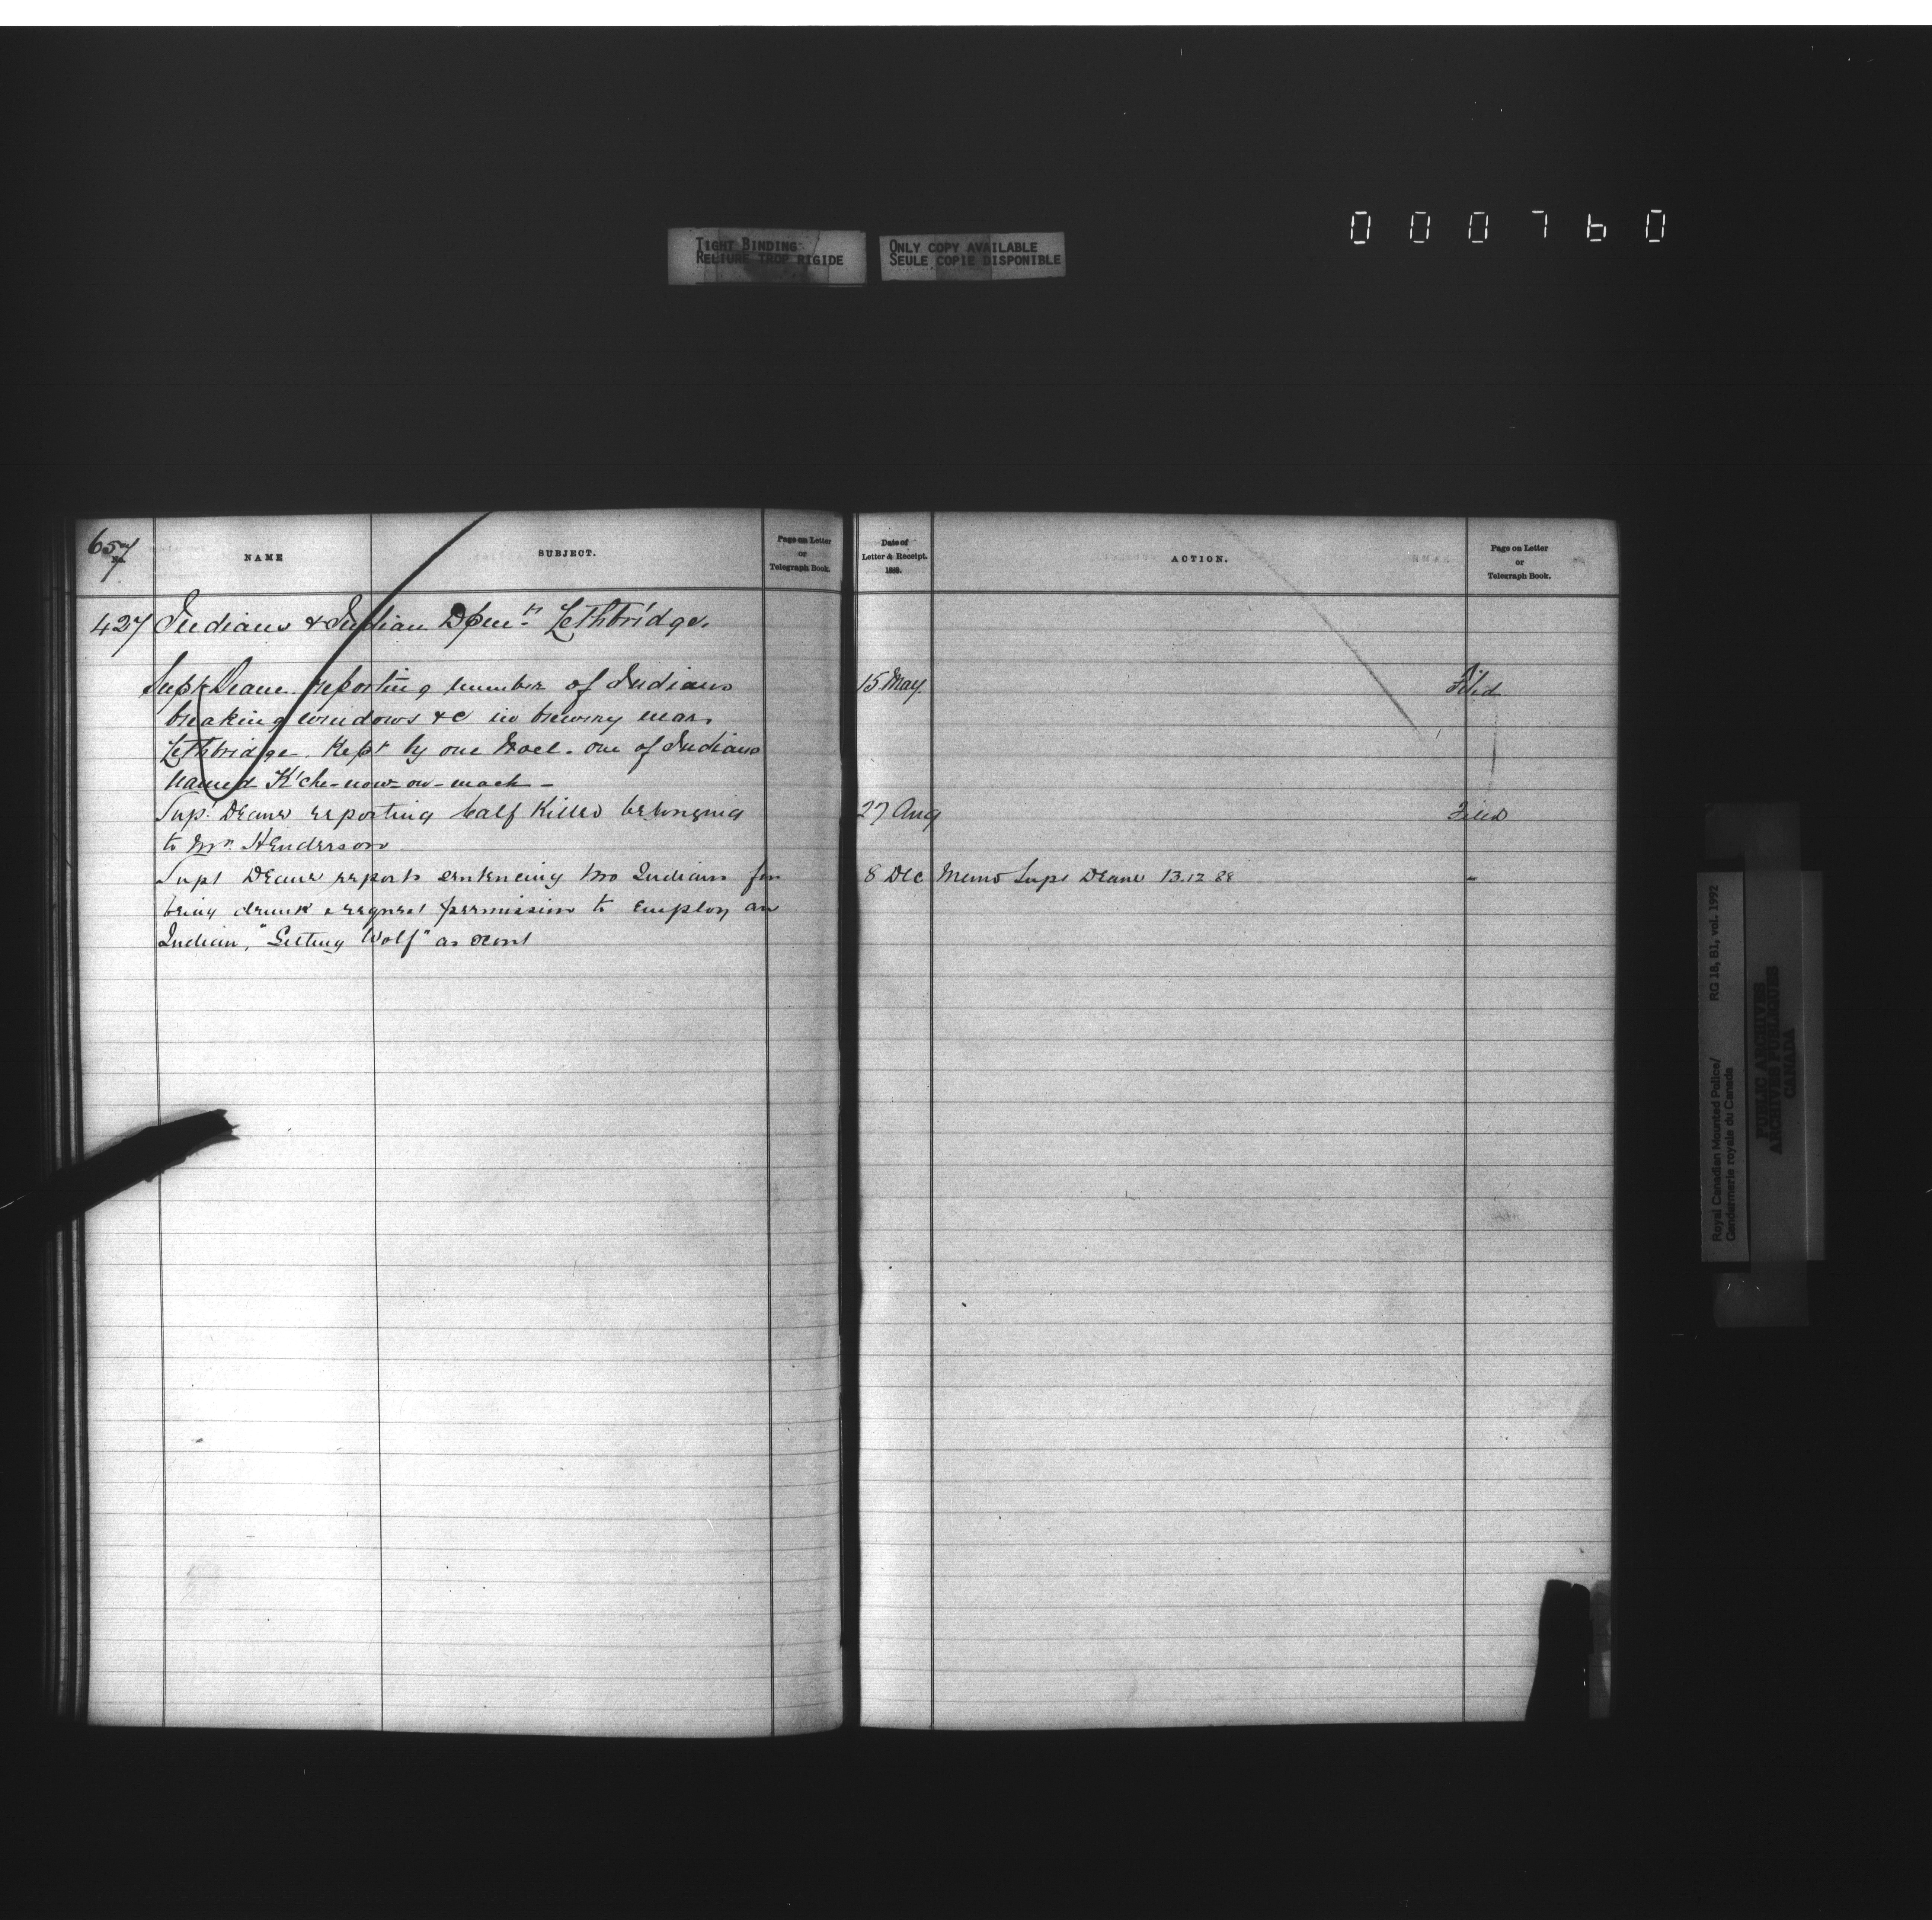 TIGHT BINDING
RELIURE TROP RIGIDE
ONLY COPY AVAILABLE
SEULE COPIE DISPONIBLE
000760
657
No.
NAME
SUBJECT.
Page on Letter
or
Telegraph Book.
427 Indians & Indian Dpmt. Lethbridge.
Supt Deane reporting number of Indians
breaking windows &c in brewery near
Lethbridge. Kept by one. one of Indians
named K'che-now-ow-mack -
Supt. Deane reporting Calf Killed belonging
to Mr. Henderson
Supt Deane reports sentencing two Indians for
being drunk & request permission to employ an
Indian, "Sitting Wolf" as scout
Date of
Letter & Receipt.
1888.
ACTION.
Page on Letter
or
Telegraph Book.
15 May Filed
27 Aug Filed
8 Dec Memo Supt Deane 13.12.88 "
Royal Canadian Mounted Police/
Gendarmerie royale du Canada
RG 18, B1, vol. 1992
PUBLIC ARCHIVES
ARCHIVES PUBLIQUES
CANADA